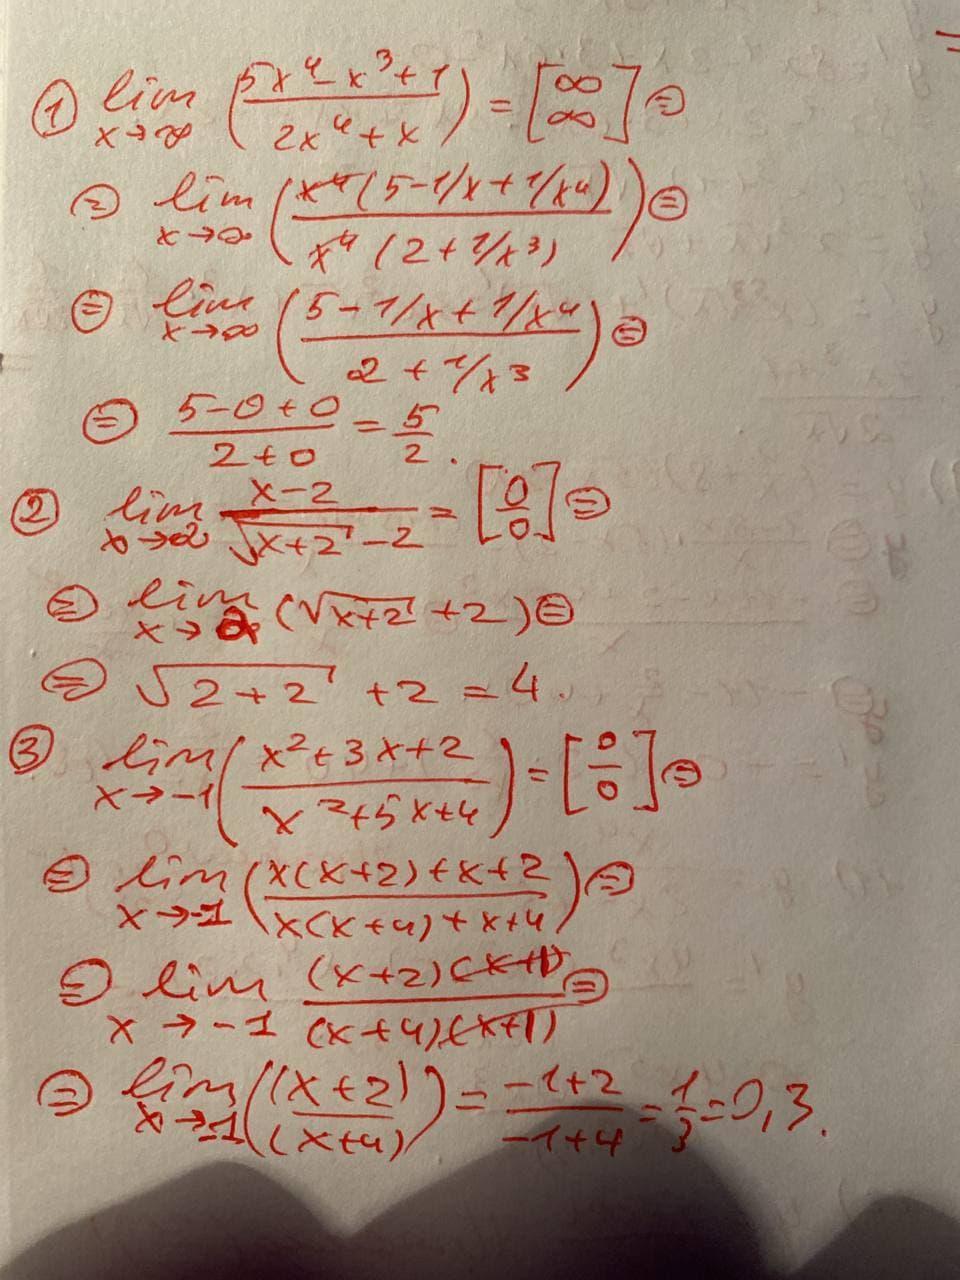 ① lim x→∞ ((5x⁴-x³+1)/(2x⁴+x)) = [∞/∞] ⊜
⊜ lim x→∞ ((x⁴(5-1/x+1/x⁴))/(x⁴(2+1/x³))) ⊜
⊜ lim x→∞ ((5-1/x+1/x⁴)/(2+1/x³)) ⊜
⊜ (5-0+0)/(2+0) = 5/2.
② lim x→2 (x-2)/(√(x+2)-2) = [0/0] ⊜
⊜ lim x→2 (√(x+2)+2) ⊜
⊜ √(2+2)+2 = 4.
③ lim x→-1 ((x²+3x+2)/(x²+5x+4)) = [0/0] ⊜
⊜ lim x→-1 ((x(x+2)+x+2)/(x(x+4)+x+4)) ⊜
⊜ lim x→-1 ((x+2)(x+1))/((x+4)(x+1)) ⊜
⊜ lim x→-1 ((x+2)/(x+4)) = (-1+2)/(-1+4) = 1/3 = 0,3.